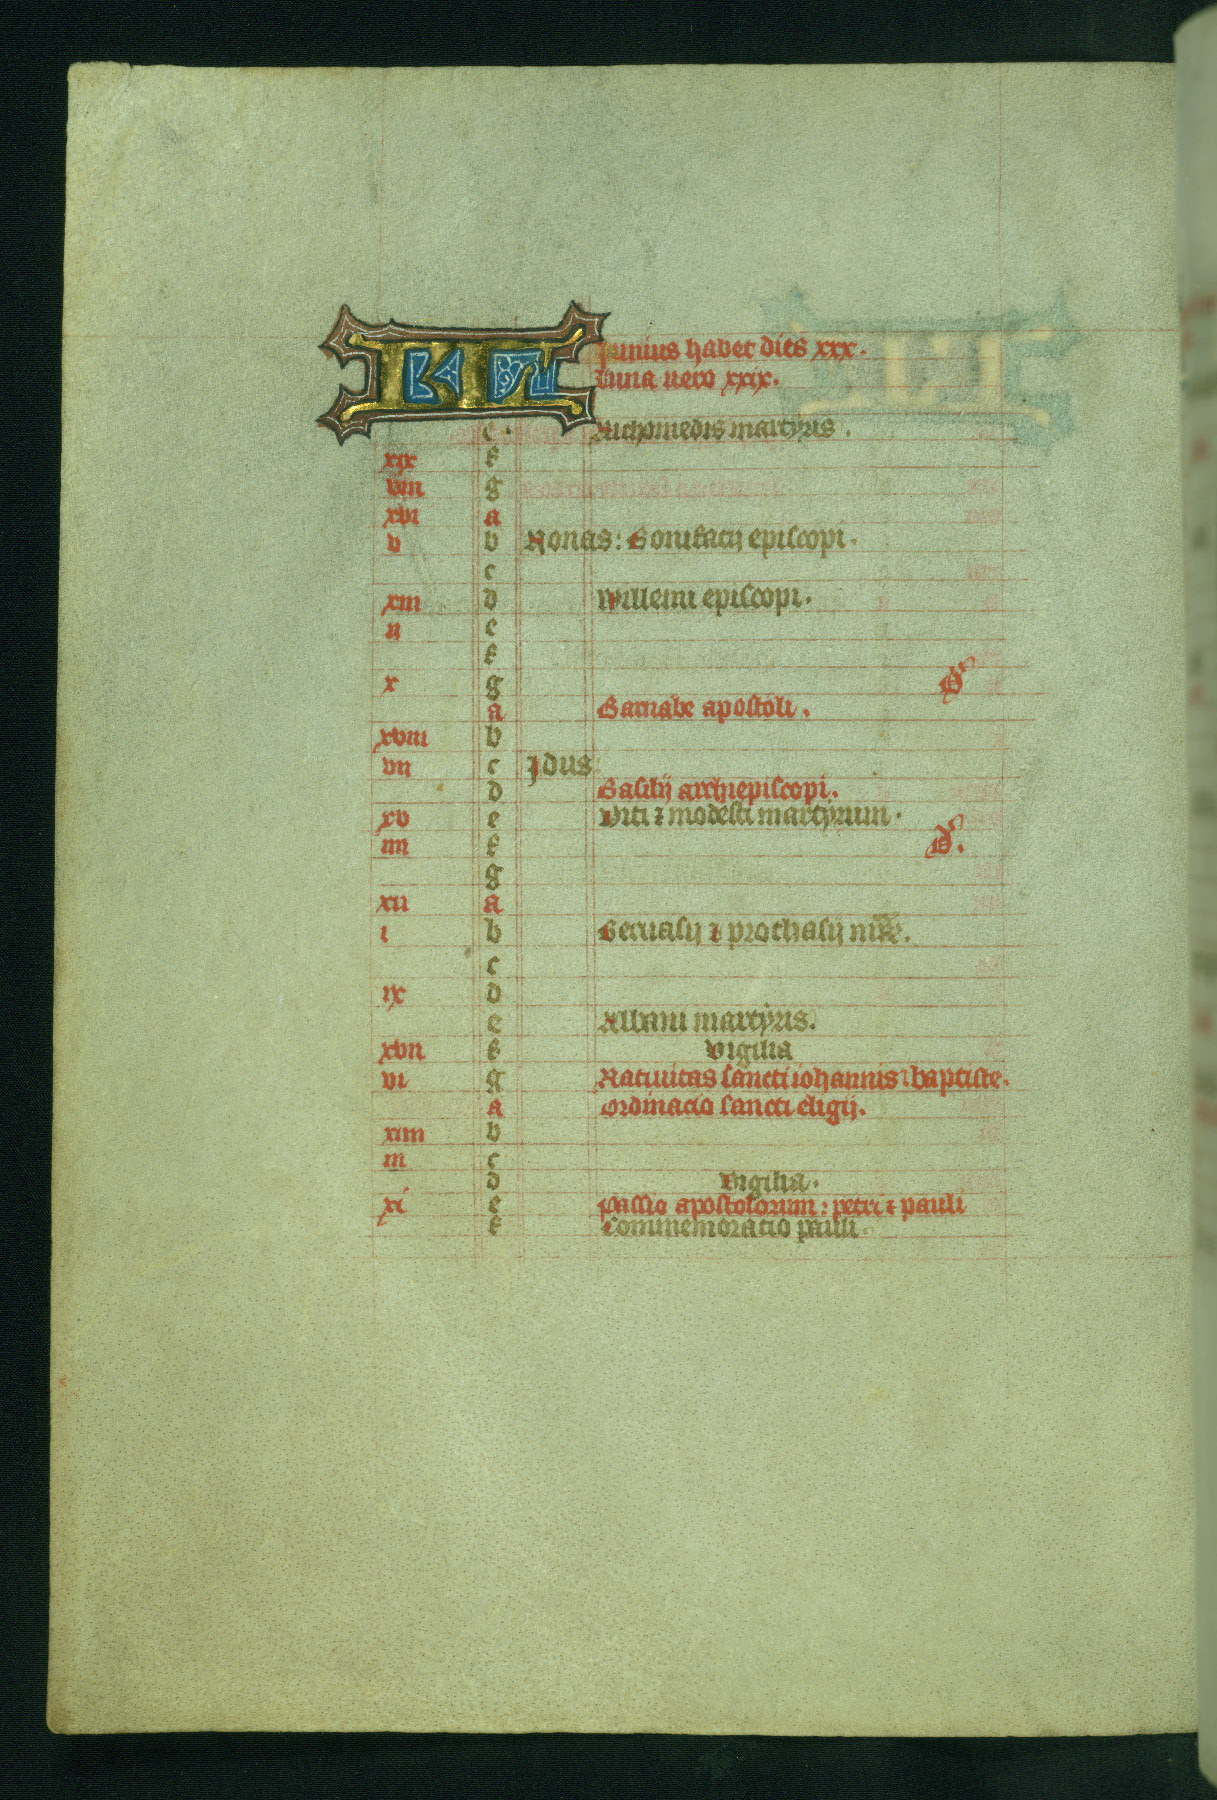 KL Iunius habet dies xxx.
Luna uero xxix.
e. Nichomedis martyris.
xix f
viii g
xvi a
v b Nonas: Bonifacij episcopi.
c
xiii d Willemi episcopi.
ii e
f
x g D
a Barnabe apostoli.
xviii b
vii c Idus
d Basilij archiepiscopi.
xv e Viti ⁊ modesti martyrum.
iiii f D.
g
xii a
i b Geruasij ⁊ prothasij
c
ix d
e Albani martyris.
xvii f vigilia
vi g Natiuitas sancti iohannis baptiste.
a Ordinacio sancti eligij.
xiiii b
iii c
d vigilia.
xi e Passio apostolorum: petri ⁊ pauli
f Commemoracio pauli.